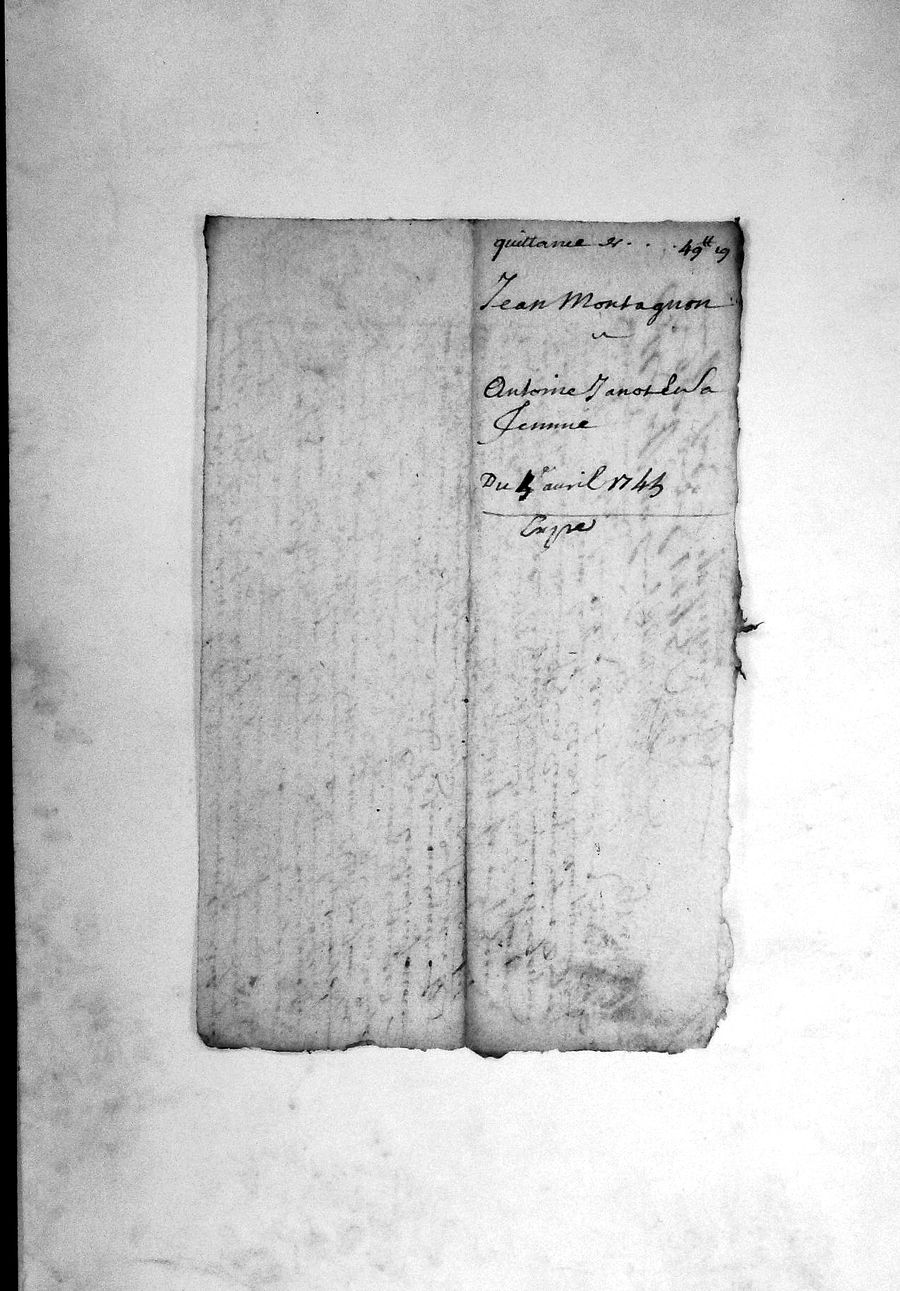 quittance de . . . 49tt 19
Jean Montagnon
a
Antoine Janot du Sa
femme
Du avril 1745
Exppe